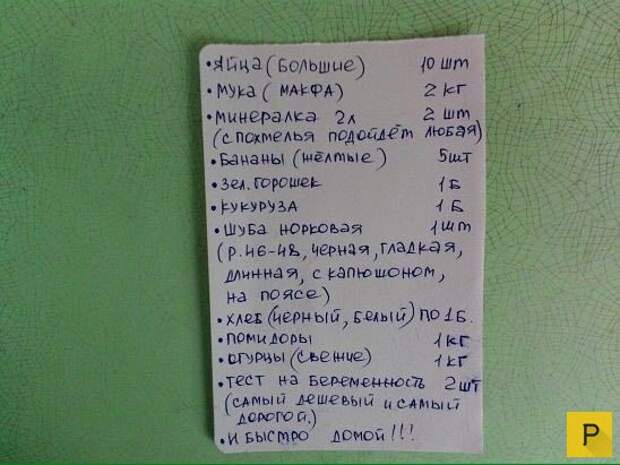 • Яйца (большие) 10 шт
• мука (макфа) 2 кг
• минералка 2л 2 шт
(с похмелья подойдёт любая)
• бананы (жёлтые) 5шт
• зел. горошек 1 Б
• кукуруза 1 Б
• шуба норковая 1 шт
(р. 46-48, черная, гладкая,
длинная, с капюшоном,
на поясе)
• хлеб (черный, белый) по 1 Б.
• помидоры 1 кг
• огурцы (свежие) 1 кг
• тест на беременность 2 шт
(самый дешевый и самый
дорогой.)
• и быстро домой!!!
P